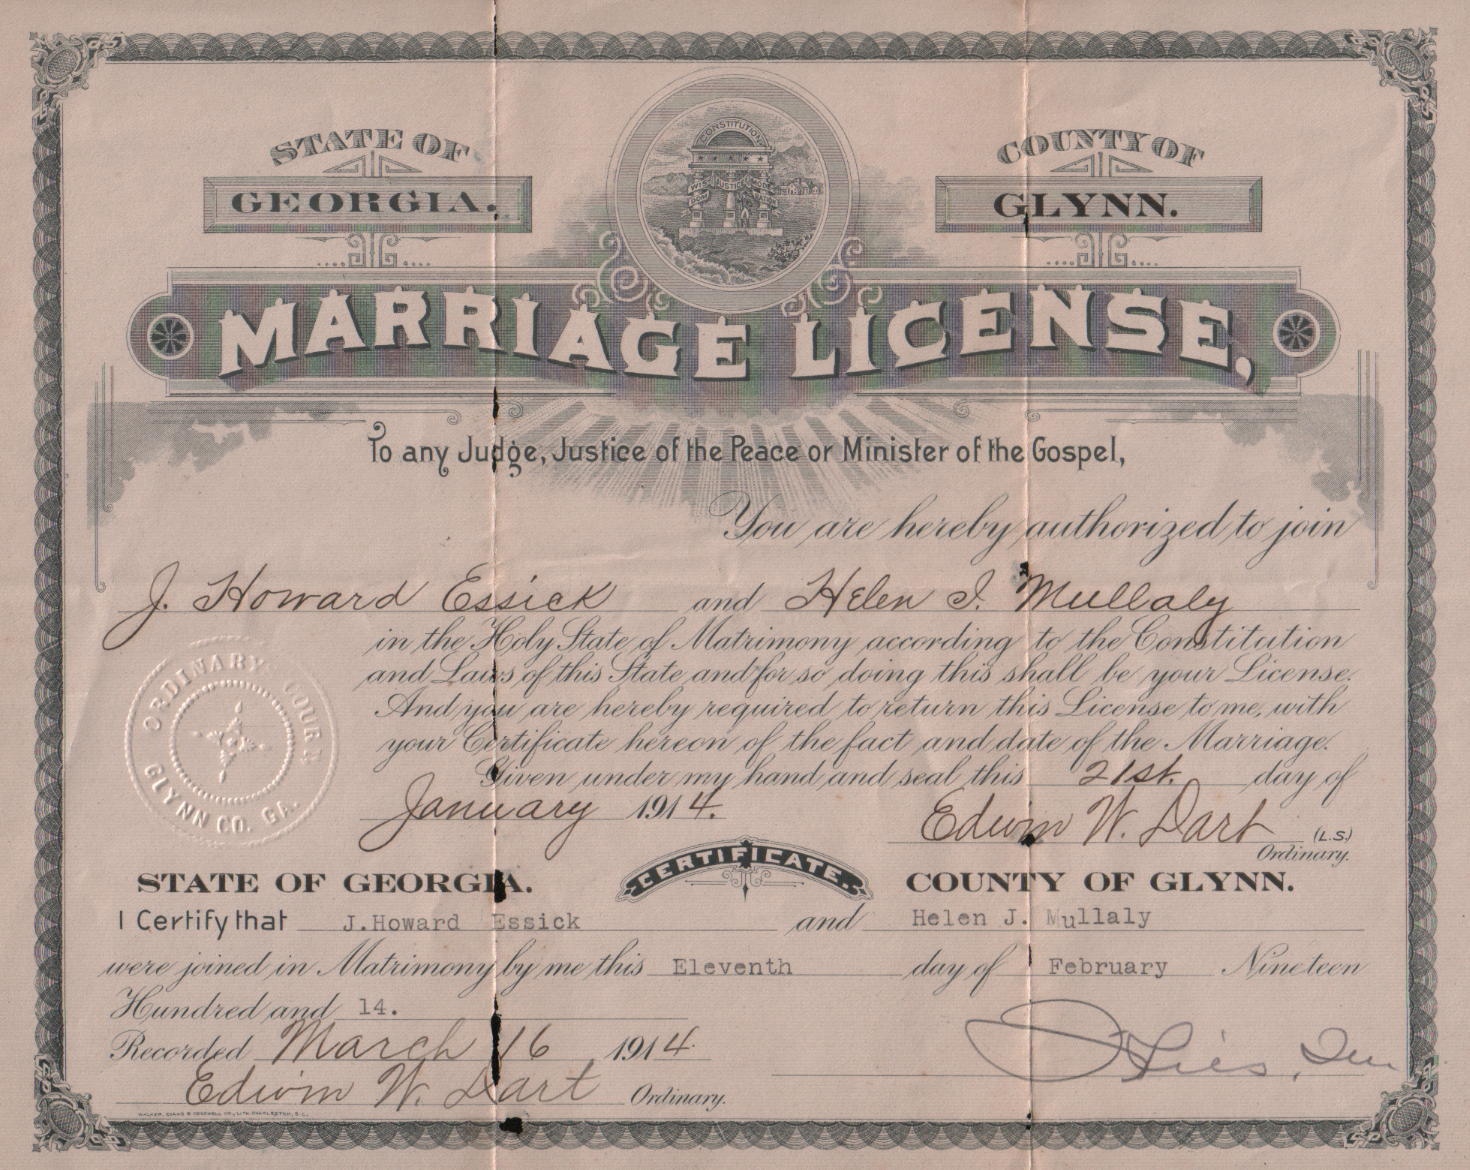 STATE OF
GEORGIA.
CONSTITUTION
WISDOM JUSTICE
COUNTY OF
GLYNN.
MARRIAGE LICENSE,
To any Judge, Justice of the Peace or Minister of the Gospel,
You are hereby authorized to join
J. Howard Essick and Helen I. Mullaly
in the Holy State of Matrimony according to the Constitution
and Laws of this State and for so doing this shall be your License.
And you are hereby required to return this License to me, with
your Certificate hereon of the fact and date of the Marriage.
Given under my hand and seal this 21st. day of
January 1914. Edwin W. Dart (L.S.)
Ordinary.
ORDINARY COURT
GLYNN CO. GA.
CERTIFICATE.
STATE OF GEORGIA. COUNTY OF GLYNN.
I Certify that J.Howard Essick and Helen J. Mullaly
were joined in Matrimony by me this Eleventh day of February Nineteen
Hundred and 14.
Recorded March 16 1914.
Edwin W. Dart Ordinary.
WALKER, EVANS & COGSWELL CO., LITH. CHARLESTON, S.C.